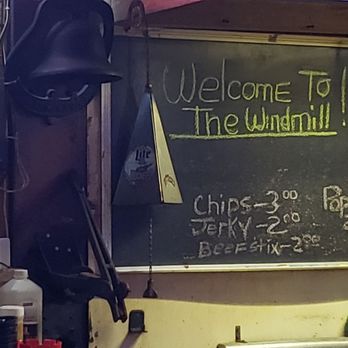 Welcome To
The Windmill!
Chips-3⁰⁰ Pop
Jerky-2⁰⁰
BEEFStix-2⁰⁰
Lite